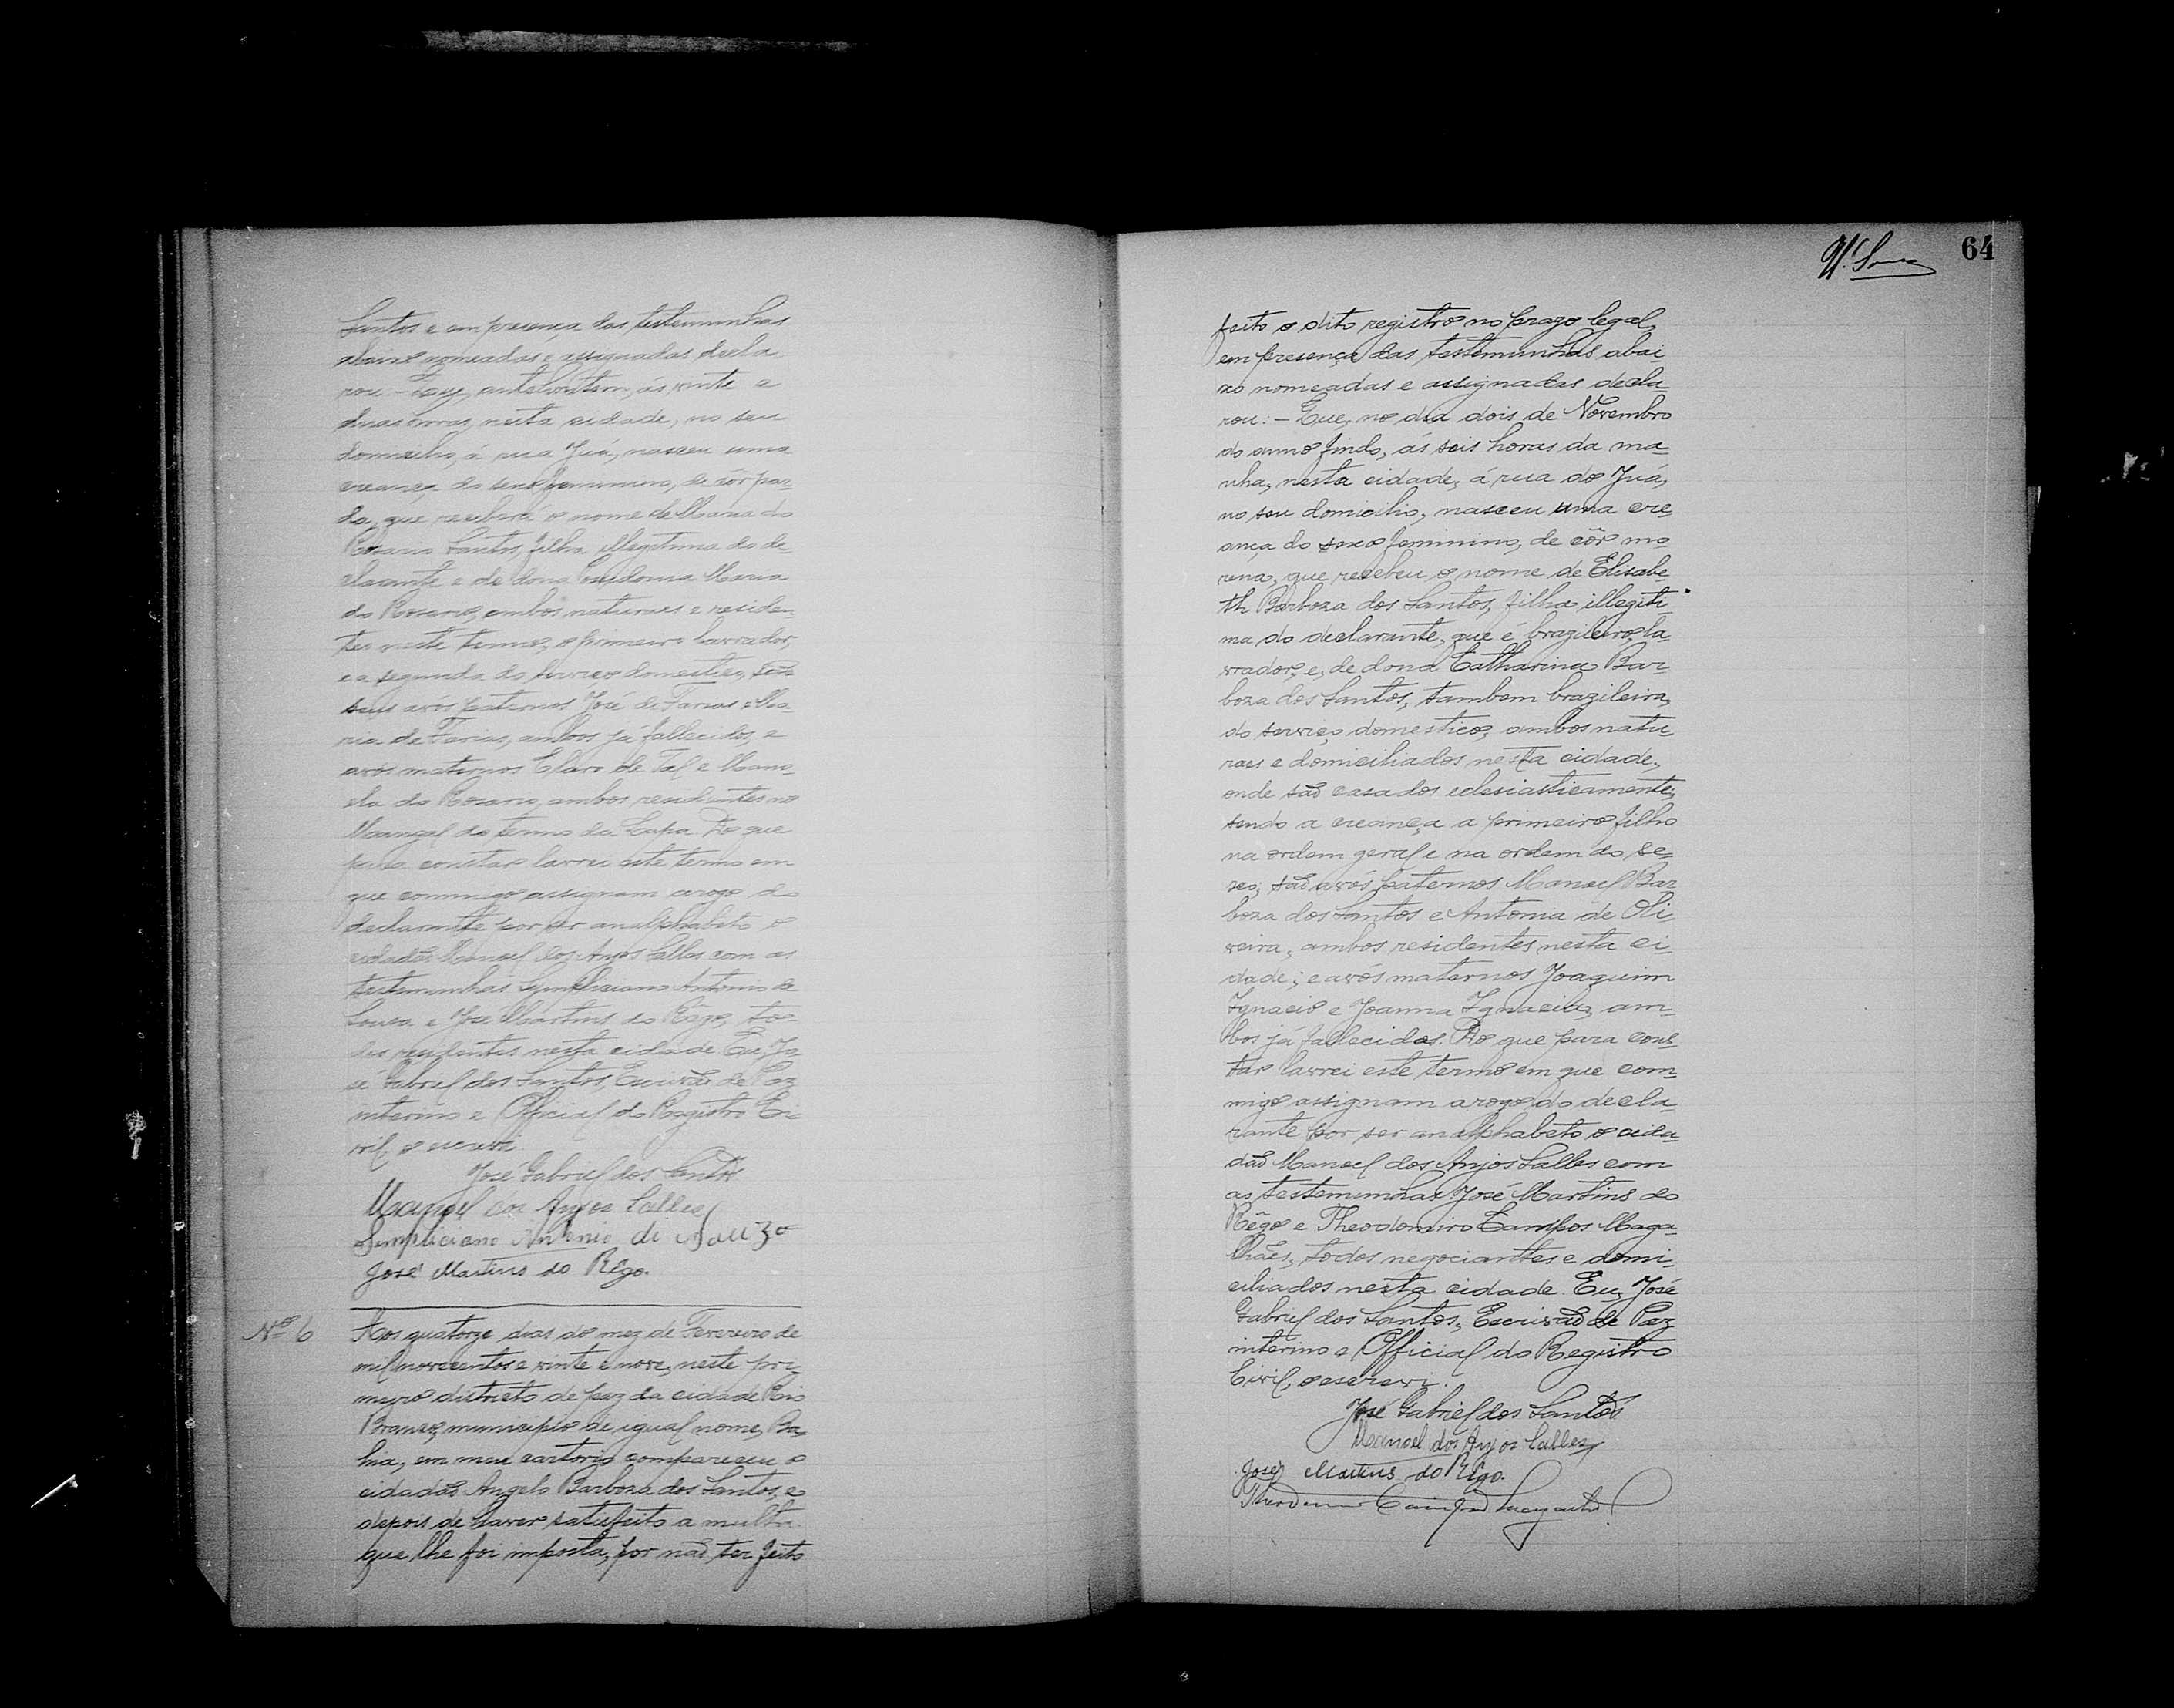 Santos e em presença das testemunhas
abaixo nomeadas e assignadas decla
rou:- Que, antehontem, ás vinte e
duas horas, nesta cidade, no seu
domicilio, á rua Juá, nasceu uma
creança do sexo femminino, de côr par-
da, que receberá o nome de Maria do
Rosario Santos, filha illegitima do de-
clarante e de dona Maria
do Rosario, ambos naturaes e residen
tes neste termo, o primeiro lavrador,
e a segunda do serviço domestico,
seus avós paternos José de Farias e Ma-
ria de Farias, ambos já fallecidos, e
avós maternos Claro de Tal e Mano-
ela do Rosario, ambos residentes no
Mangal do termo da Lapa. Do que
para constar lavrei este termo em
que commigo assignam arogo do
declarante por ser analphabeto o
cidadão Manoel dos Anjos Salles com as
testemunhas Simpliciano Antonio de
Souza e José Martins do Rêgo, to-
dos residentes nesta cidade. Eu, Jo-
sé Gabriel dos Santos, Escrivão de Paz
interino e Official do Registro Ci-
vil, o escrevi.
José Gabriel dos Santos
Manoel dos Anjos Salles
Simpliciano Antonio di Souza
José Martins do Rêgo.
Nº 6
Aos quatorze dias do mez de Fevereiro de
mil novecentos e vinte e nove, neste pri-
meiro districto de paz da cidade Rio
Branco, municipio de igual nome, Ba-
hia, em meu cartorio compareceu o
cidadão Angelo Barboza dos Santos, e
depois de haver satisfeito a multa
que lhe foi imposta, por não ter feito
N. Souza
64
feito o dito registro no prazo legal,
em presença das testemunhas abai
xo nomeadas e assignadas decla-
rou:- Que, no dia dois de Novembro
do anno findo, ás seis horas da ma-
nha, nesta cidade, á rua do Juá,
no seu domicilio, nasceu uma cre
ança do sexo feminino, de côr mo-
rena, que recebeu o nome de Elisabe-
th Barboza dos Santos, filha illegiti-
ma do declarante, que é brazileiro, la-
vrador, e, de dona Catharina Bar-
boza dos Santos, tambem brazileira,
do serviço domestico, ambos natu-
raes e domiciliados nesta cidade,
onde são casados eclesiasticamente,
sendo a creança a primeiro filho
na ordem geral e na ordem do se-
xo; são avós paternos Manoel Bar-
boza dos Santos e Antonia de Oli-
veira, ambos residentes nesta ci-
dade; e avós maternos Joaquim
Ignacio e Joanna Ignacia, am-
bos já fallecidos. Do que para cons-
tar lavrei este termo em que com-
migo assignam arogo do decla-
rante por ser analphabeto o cida-
dão Manoel dos Anjos Salles com
as testemunhas José Martins do
Rêgo e Theodomiro Campos Maga-
lhães, todos negociantes e domi-
ciliados nesta cidade. Eu, José
Gabriel dos Santos, Escrivão de Paz
interino e Official do Registro
Civil, o escrevi.
José Gabriel dos Santos
Manoel dos Anjos Salles
José Martins do Rêgo.